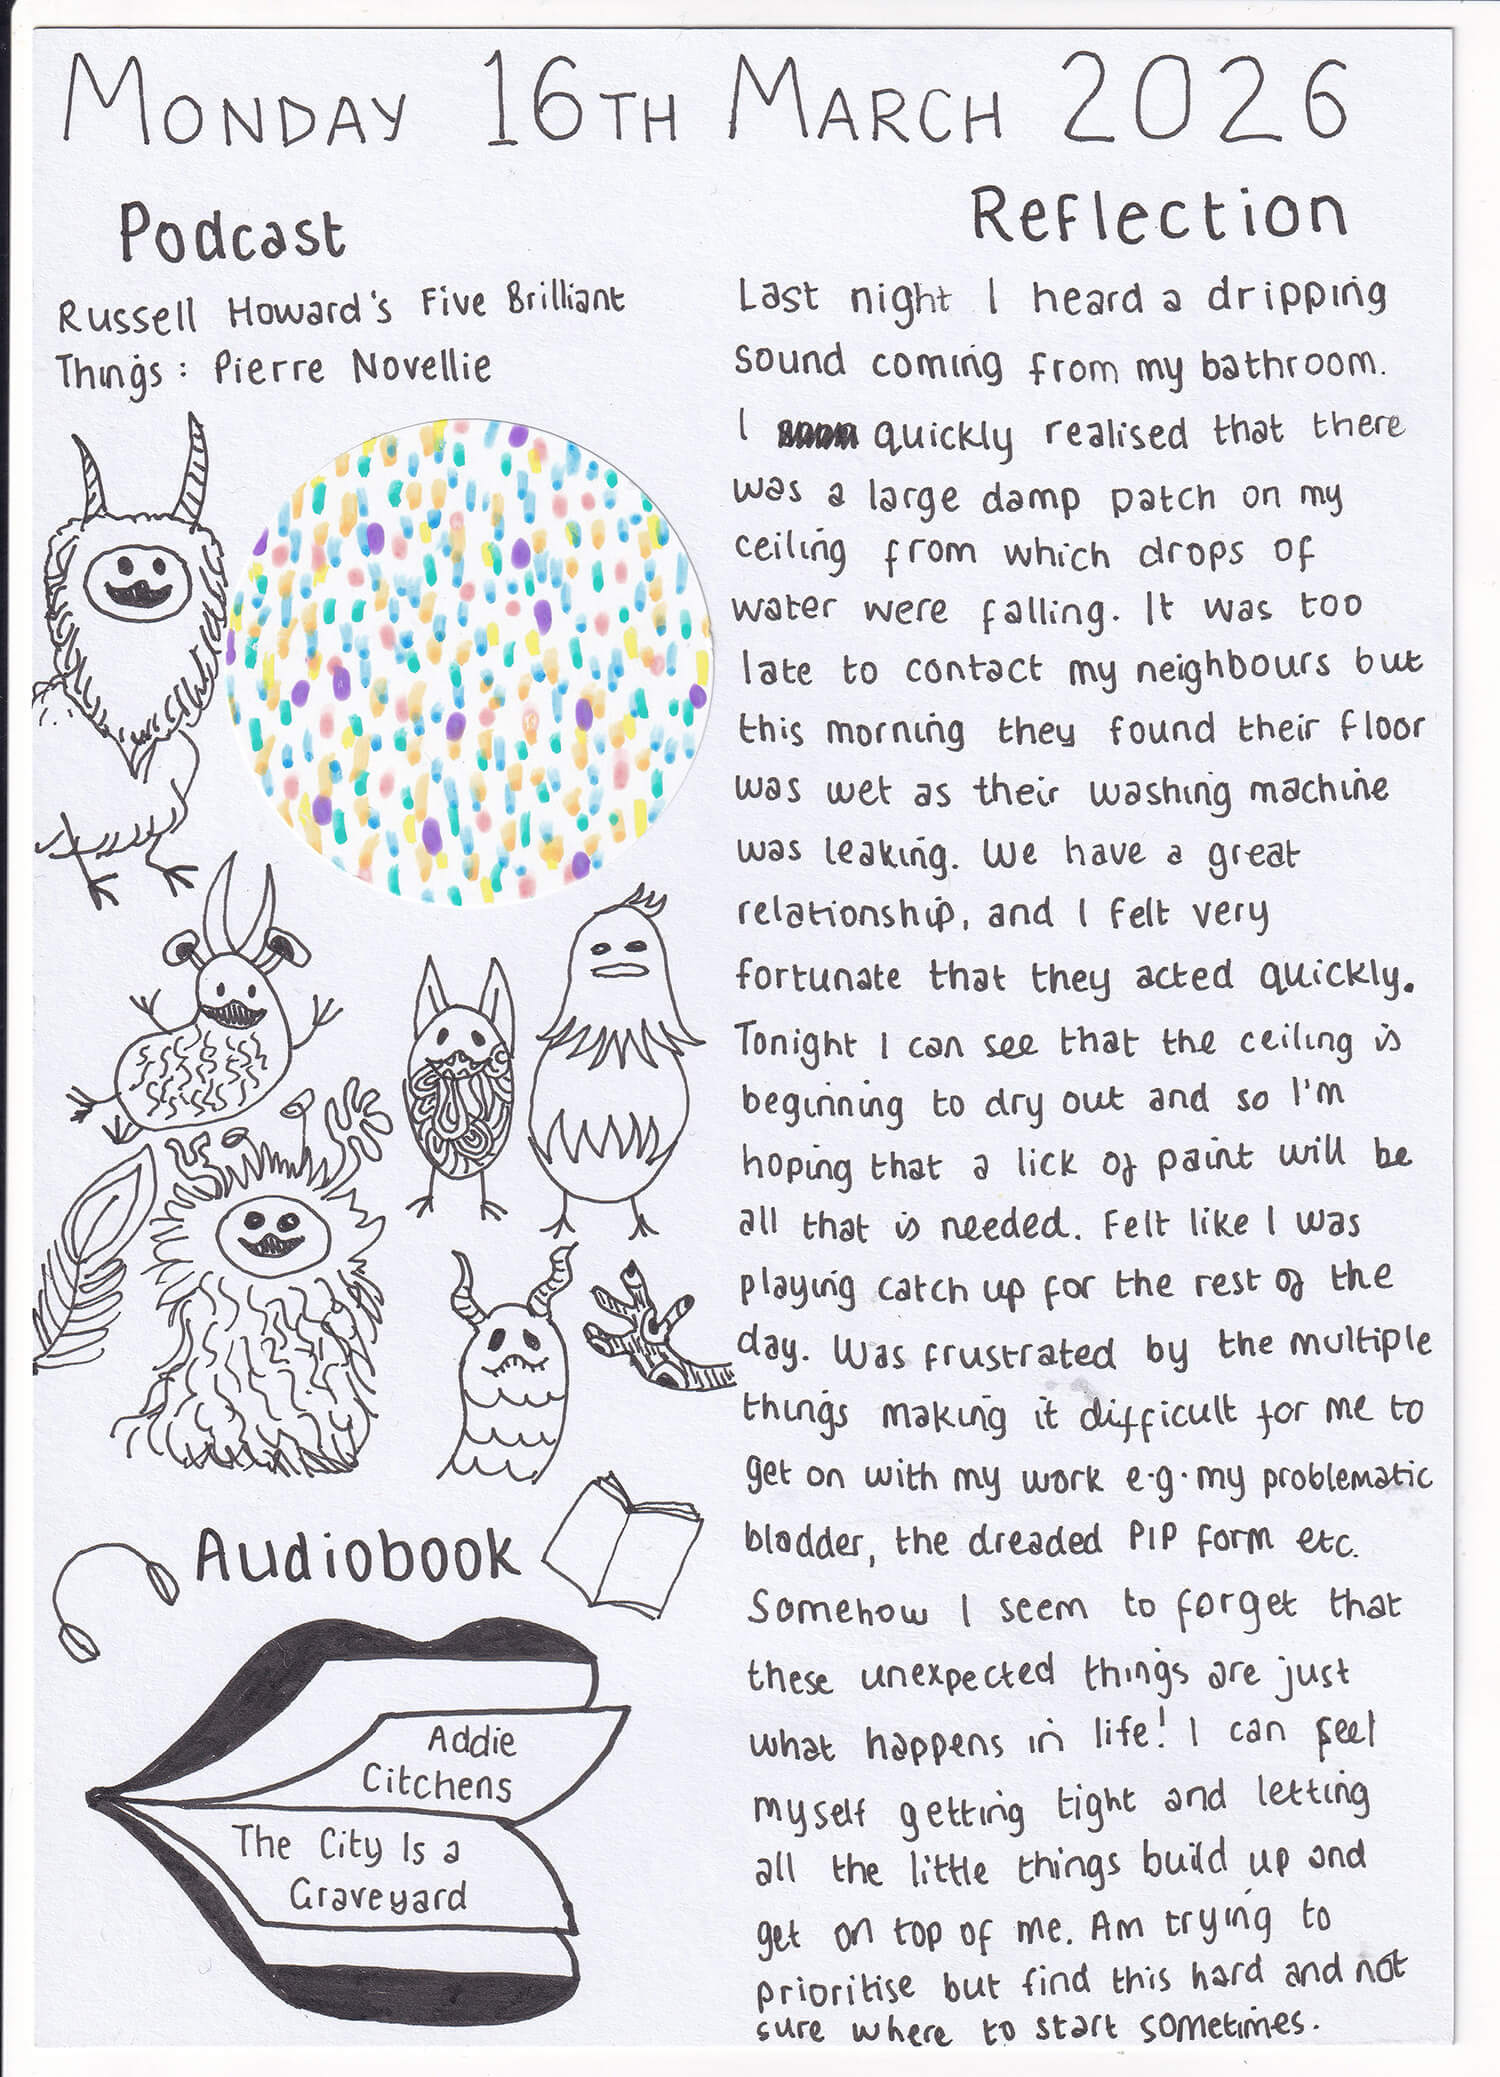 MONDAY 16TH MARCH 2026
Podcast
Russell Howard's Five Brilliant
Things: Pierre Novellie
Audiobook
Addie
Citchens
The City Is a
Graveyard
Reflection
Last night I heard a dripping
sound coming from my bathroom.
I quickly realised that there
was a large damp patch on my
ceiling from which drops of
water were falling. It was too
late to contact my neighbours but
this morning they found their floor
was wet as their washing machine
was leaking. We have a great
relationship, and I felt very
fortunate that they acted quickly.
Tonight I can see that the ceiling is
beginning to dry out and so I'm
hoping that a lick of paint will be
all that is needed. Felt like I was
playing catch up for the rest of the
day. Was frustrated by the multiple
things making it difficult for me to
get on with my work e.g. my problematic
bladder, the dreaded PIP form etc.
Somehow I seem to forget that
these unexpected things are just
what happens in life! I can feel
myself getting tight and letting
all the little things build up and
get on top of me. Am trying to
prioritise but find this hard and not
sure where to start sometimes.